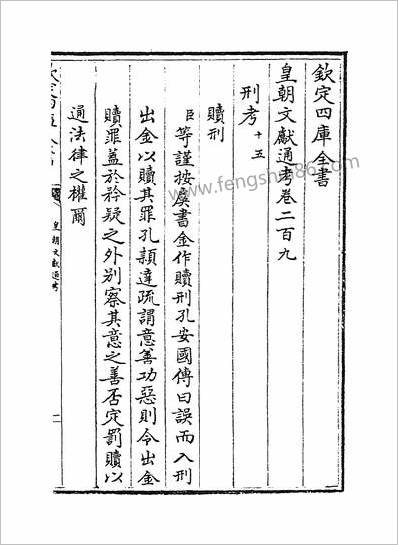 欽定四庫全書
皇朝文獻通考卷二百九
刑考十五
贖刑
臣等謹按虞書金作贖刑孔安國傳曰誤而入刑
出金以贖其罪孔頴達疏謂意善功惡則令出金
贖罪蓋於矜疑之外別察其意之善否定罰贖以
通法律之權爾
皇朝文獻通考
www.fengshui86.com